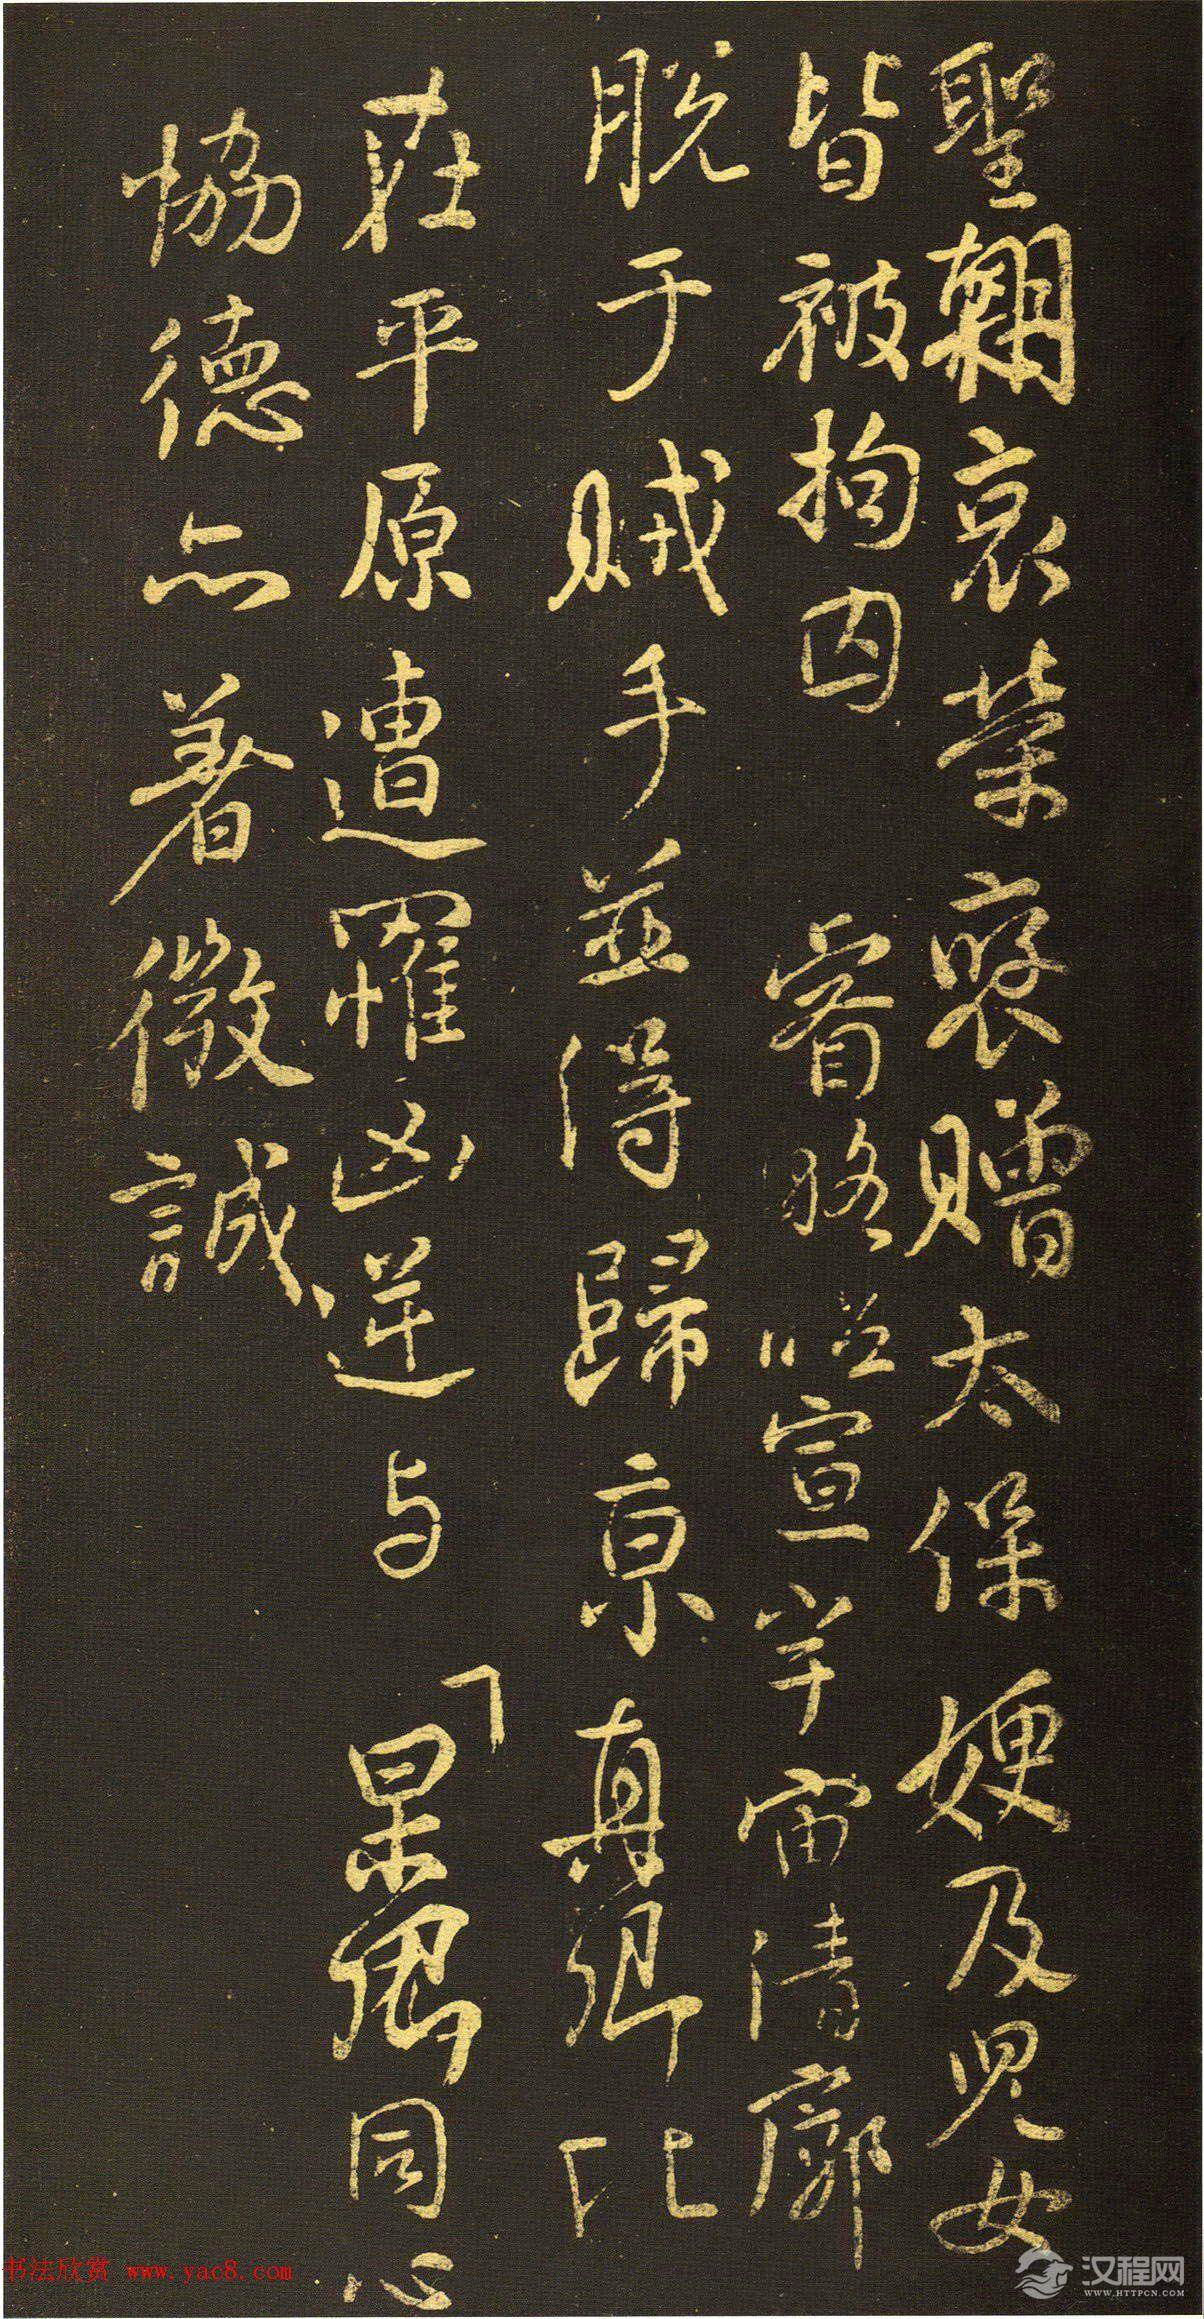 聖朝哀榮褒贈太保嫂及兒女
皆被拘囚 睿略昭宣宇宙清廓
脫于賊手並得歸京真卿比
在平原遭罹凶逆与 杲卿同心
協德亦著微誠
书法欣赏 www.yac8.com
汉程网
WWW.HTTPCN.COM